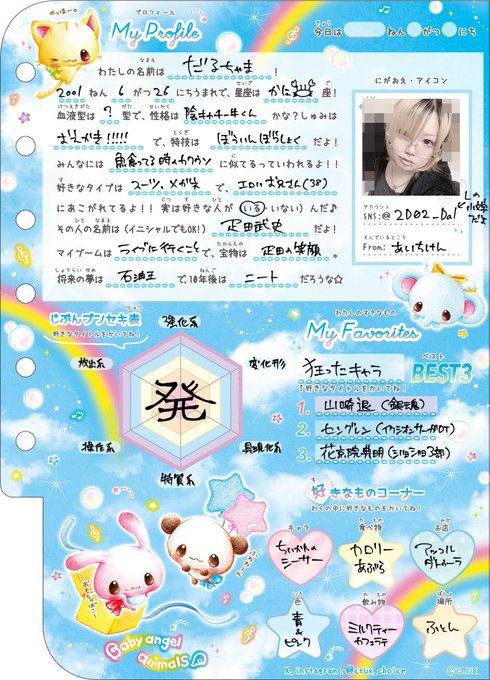 やっほー♡
プロフィール
My Profile
今日は ねん がつ にち
わたしの名前は だるちゃま !
2001 ねん 6 がつ 26 にちうまれで、星座は かに 座!
血液型は ? 型で、性格は 陰キャチー牛くん かな?しゅみは
おじかま!!!!! で、特技は ぼういんぼうしょく だよ!
みんなには 魚食ってる時のカワウソ に似てるっていわれるよ!!
好きなタイプは スーツ、メガネ で、エロいお兄さん(38)
にあこがれてるよ!! 実は好きな人が (いる・いない)んだ♪
その人の名前は(イニシャルでもOK!) 疋田武史 だよ!
マイブームは ライブに行くこと で、宝物は 疋田の笑顔。
将来の夢は 石油王 で、10年後は ニート だろうな☆
にがおえ・アイコン
アカウント
SNS:@ 2D02_Dal
Lの小文字だよ
すんでいるところ
From: あいちけん
じぶんブンセキ表
好きなタイトルをかいてね!
強化系
放出系
変化形
発
操作系
具現化系
特質系
わたしのすきなもの
My Favorites
狂ったキャラ
ベスト
BEST3
↑好きなタイトルをかいてね!
1. 山崎退(銀魂)
2. セングレン(イクシオンサーガDT)
3. 花京院典明(ジョジョ3部)
好きなものコーナー
わくの中に好きなものをかいてね!
キャラ
ちいかわのシーサー
食べ物
カロリー
あぶら
お店
アッコルダトゥーラ
色
青&ピンク
飲み物
ミルクティー
カフェラテ
場所
ふとん
Baby angel animals
X, instagram : @crux_choice
©CRUX